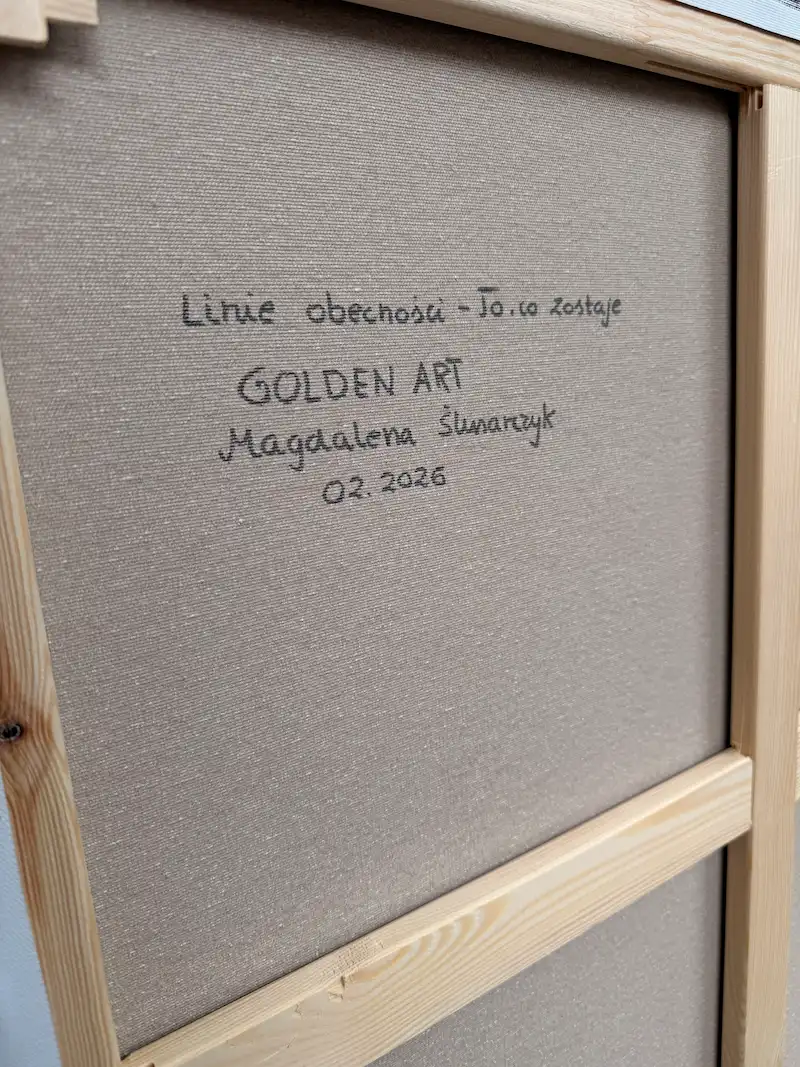 Linie obecności - To.co zostaje
GOLDEN ART
Magdalena Ślusarczyk
02.2026